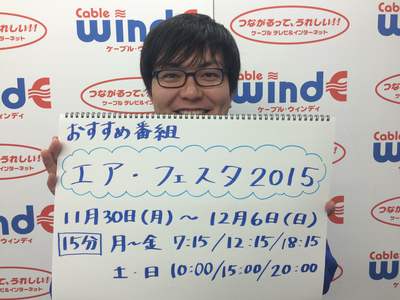 つながるって、うれしい!!
ケーブルテレビ&インターネット
Cable
wind
ケーブル・ウィンディ
Cable
wind
つながるって、うれしい!!
ケーブルテレビ&インターネット
Cable
wind
ケーブル・ウィンディ
おすすめ番組
エア・フェスタ2015
11月30日(月)〜12月6日(日)
15分 月〜金 7:15/12:15/18:15
土・日 10:00/15:00/20:00
つながるって、うれしい!!
Cable